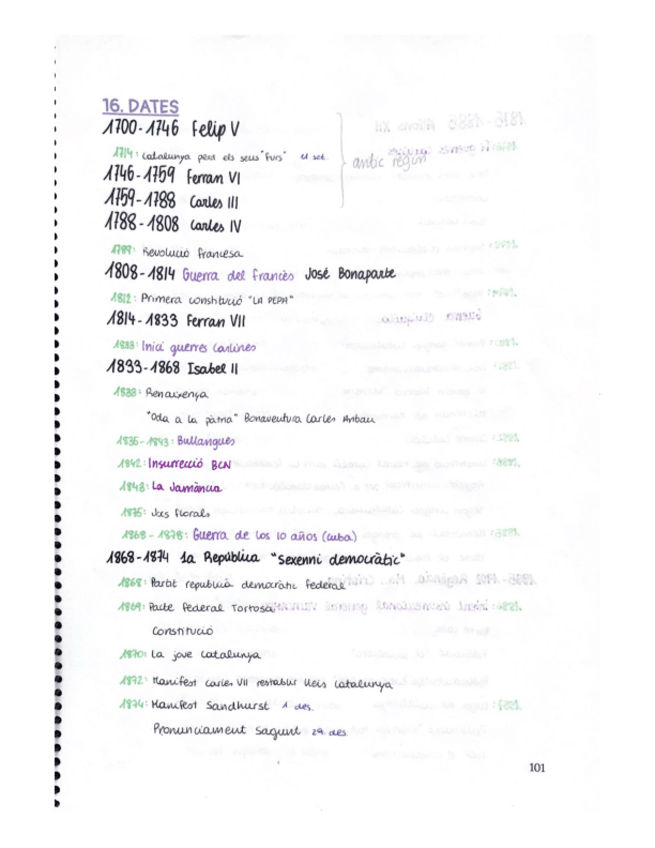 16. DATES
1700-1746 Felip V
1714: Catalunya perd els seus "furs" 11 set.
antic règim
1746-1759 Ferran VI
1759-1788 Carles III
1788-1808 Carles IV
1789: Revolució francesa
1808-1814 Guerra del francès José Bonaparte
1812: Primera constitució "LA PEPA"
1814-1833 Ferran VII
1833: Inici guerres carlines
1833-1868 Isabel II
1833: Renaixença
"Oda a la pàtria" Bonaventura Carles Aribau
1835-1843: Bullangues
1842: Insurrecció BCN
1843: La Jamància
Jocs florals
1868-1878: Guerra de los 10 años (Cuba)
1868-1874 1a República "sexenni democràtic"
1868: Partit republicà democràtic federal
1869: Pacte Federal Tortosa
Constitució
1870: La jove Catalunya
1872: Manifest Carles VII restablir lleis Catalunya
1874: Manifest Sandhurst 1 des.
Pronunciament Sagunt 29 des.
101